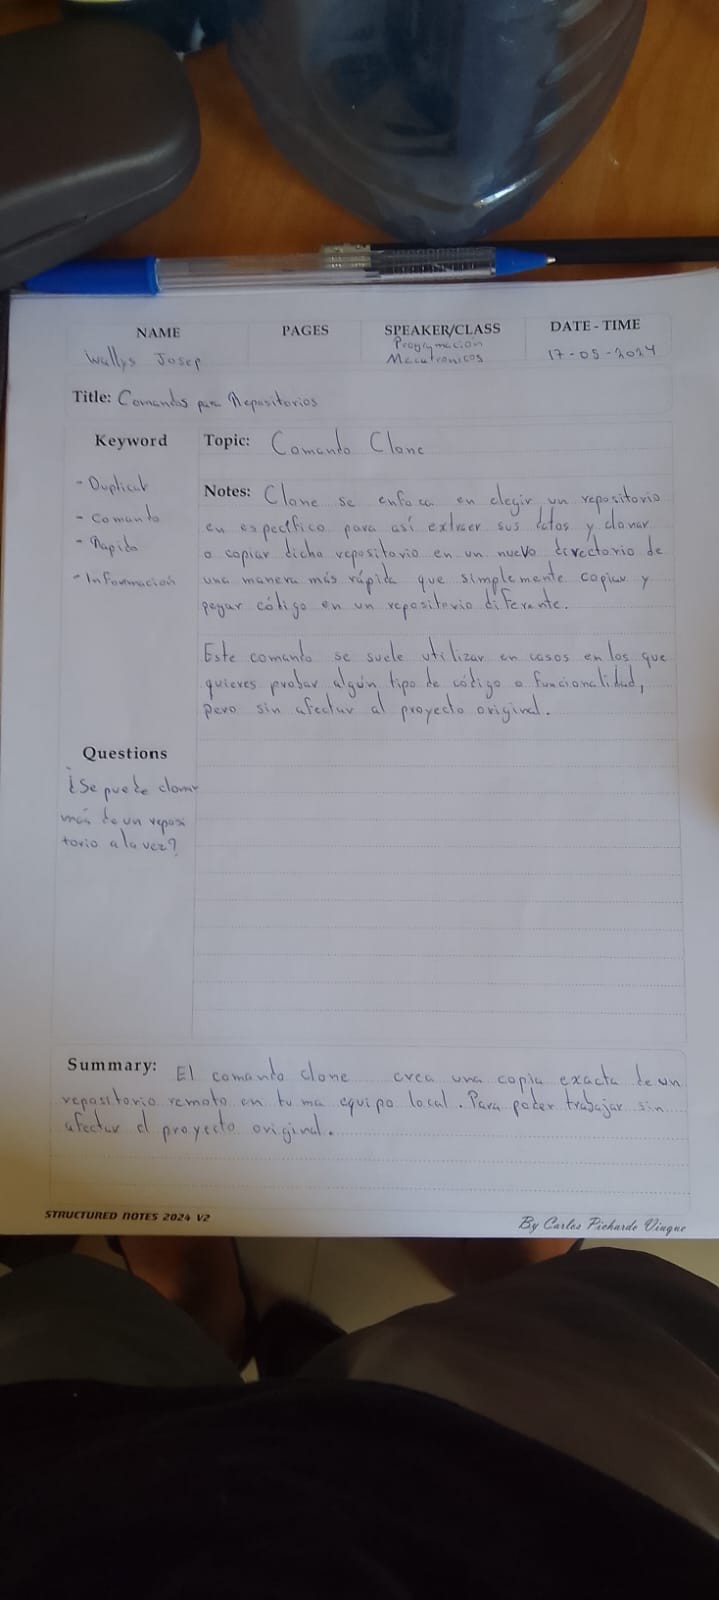 NAME
PAGES
SPEAKER/CLASS
DATE - TIME
Wallys Josep
Programación
Mecatronicos
17-05-2024
Title: Comandos para Repositorios
Keyword
- Duplicar
- Comando
- Rapido
- Información
Topic: Comando Clone
Notes: Clone se enfoca en elegir un repositorio
en específico para así extraer sus datos y clonar
o copiar dicho repositorio en un nuevo directorio de
una manera más rápida que simplemente copiar y
pegar código en un repositorio diferente.
Este comando se suele utilizar en casos en los que
quieres probar algún tipo de código o funcionalidad,
pero sin afectar al proyecto original.
Questions
¿Se puede clonar
más de un reposi
torio a la vez?
Summary: El comando clone crea una copia exacta de un
repositorio remoto en tu ma equipo local. Para poder trabajar sin
afectar el proyecto original.
STRUCTURED NOTES 2024 V2
By Carlos Pichardo Vinque